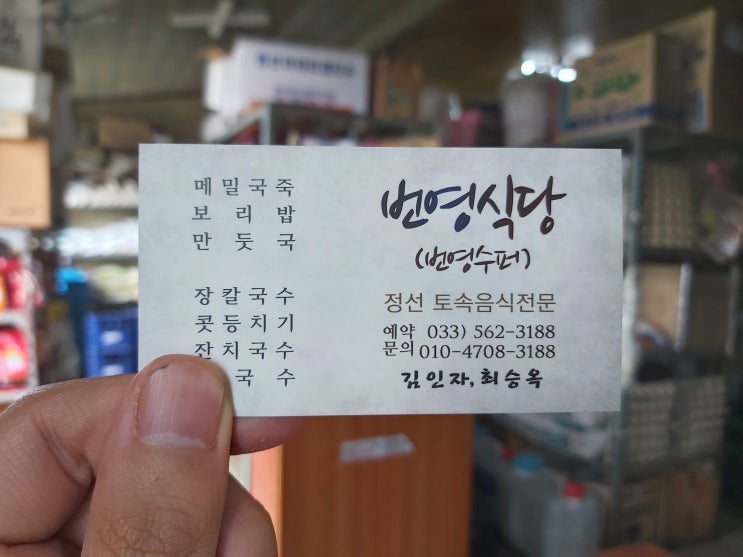 메밀국죽
보리밥
만둣국
장칼국수
콧등치기
잔치국수
국수
번영식당
(번영수퍼)
정선 토속음식전문
예약 033) 562-3188
문의 010-4708-3188
김인자, 최승옥